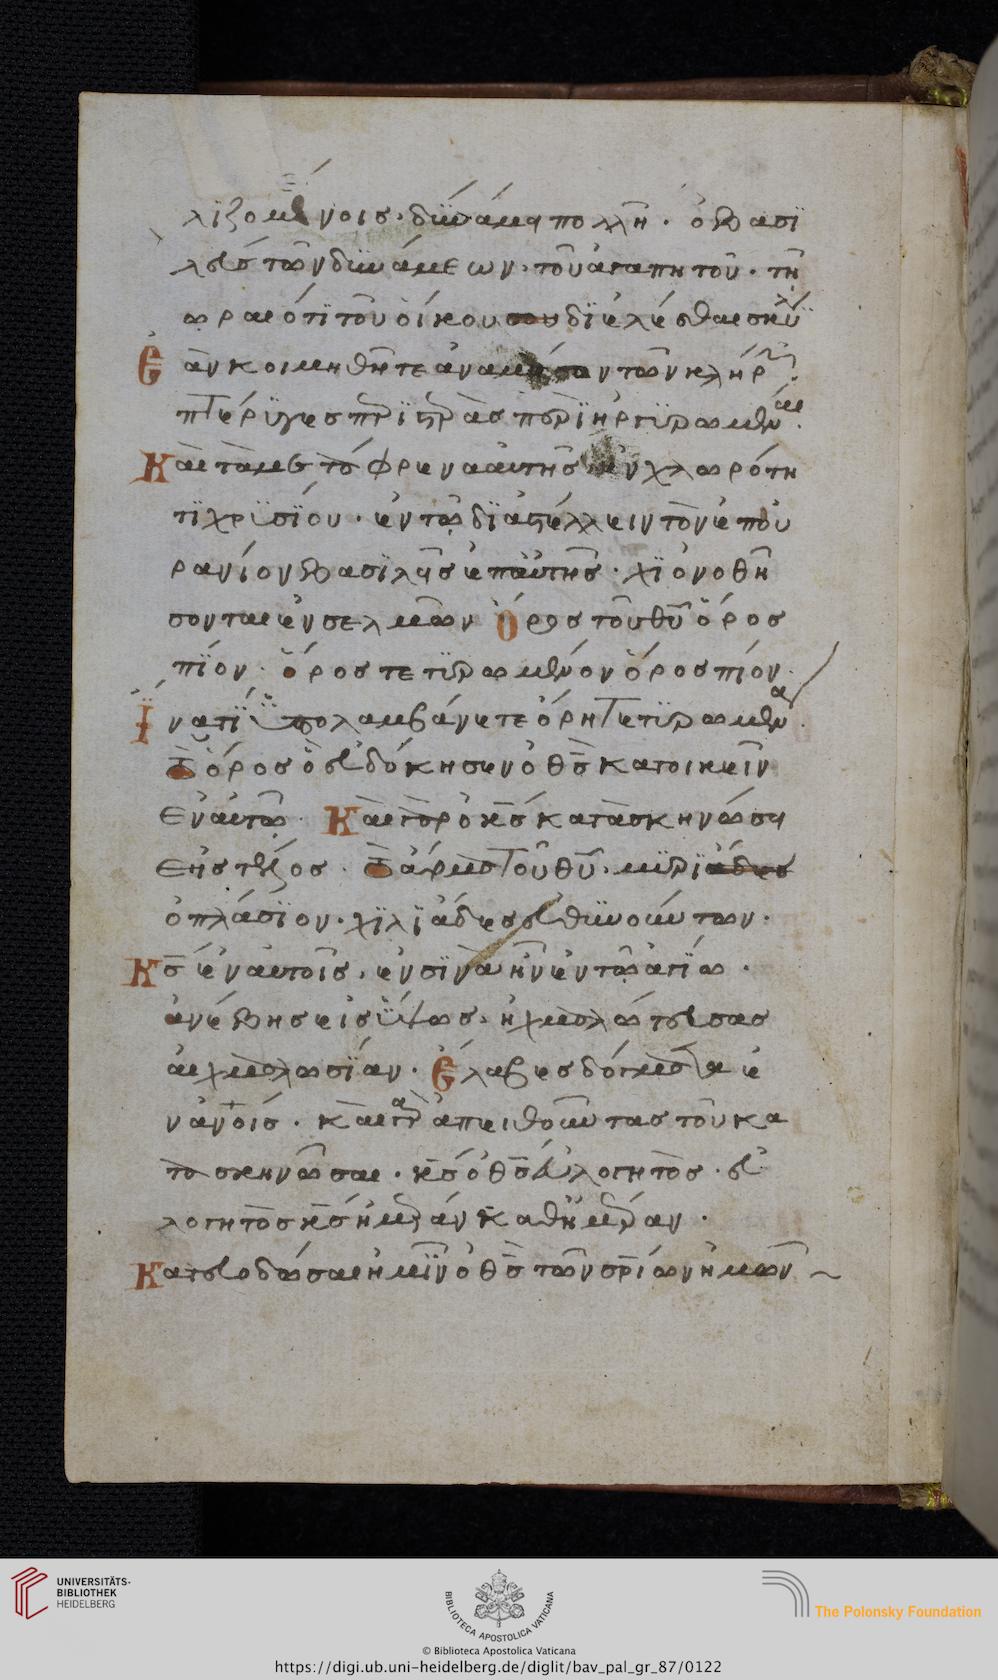 λϊζομένοις· δϋνάμει πολλῆ· ὁ βασϊ
λεὺς τῶν δϋνάμεων· τοῦ ἀγαπητοῦ· τῇ
ὡραιότητι τοῦ οἴκου διελέσθαι σκῦλ
Ἐὰν κοιμηθῆτε ἀναμέσον τῶν κλήρ
πτέρϋγες περϊστερᾶς περϊηργϋρωμέναι·
Καὶ τὰ μετάφρενα αὐτῆς ἐν χλωρότη
τϊ χρϋσϊου· ἐν τῷ δϊαστέλλειν τὸν ἐπου
ράνιον βασϊλεῖς ἐπ' αὐτῆς· χϊονοθη
σονται ἐν σελμῶν Ὄρος τοῦ θῦ ὄρος
πῖον· ὄρος τετϋρωμένον ὄρος πῖον·
Ϊνατί ϋπολαμβάνετε ὄρη τετϋρωμένα·
Τὸ ὄρος ὃ εὐδόκησεν ὁ θς κατοικεῖν
ἐν αὐτῷ· Καὶ γὰρ ὁ κς κατασκηνώσει
εἰς τέλος· Τὸ ἅρμα τοῦ θῦ· μϋρϊ
οπλάσϊον· χϊλϊάδες εὐθϋνούντων·
Κς ἐν αὐτοῖς· ἐν σϊνᾶ ἐν τῷ ἁγίῳ·
ἀνέβης εἰς ὕψος· ἠχμαλώτευσας
αἰχμαλωσϊαν· Ἔλαβες δόματα ἐ
ν ἀνοις· καὶ γὰρ ἀπειθοῦντας τοῦ κα
τασκηνῶσαι· κς ὁ θς εὐλογητὸς· εὐ
λογητὸς κς ἡμέραν καθημέραν·
Κατευοδώσαι ἡμῖν ὁ θς τῶν σρίων ἡμῶν ~
UNIVERSITÄTS-
BIBLIOTHEK
HEIDELBERG
BIBLIOTECA APOSTOLICA VATICANA
The Polonsky Foundation
© Biblioteca Apostolica Vaticana
https://digi.ub.uni-heidelberg.de/diglit/bav_pal_gr_87/0122